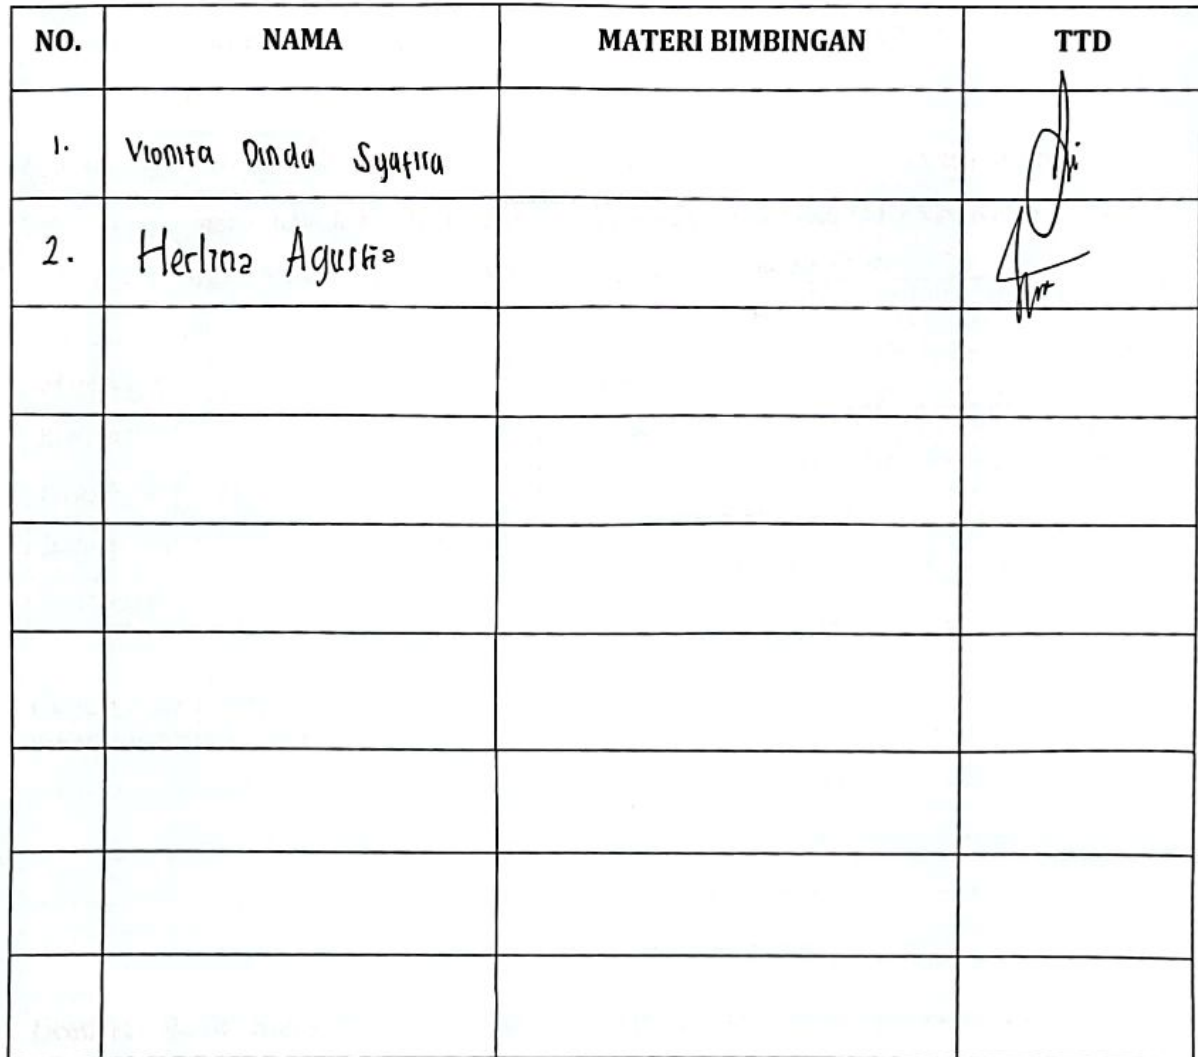 NO. NAMA MATERI BIMBINGAN TTD
1. Vionita Dinda Syafira
2. Herlina Agustia